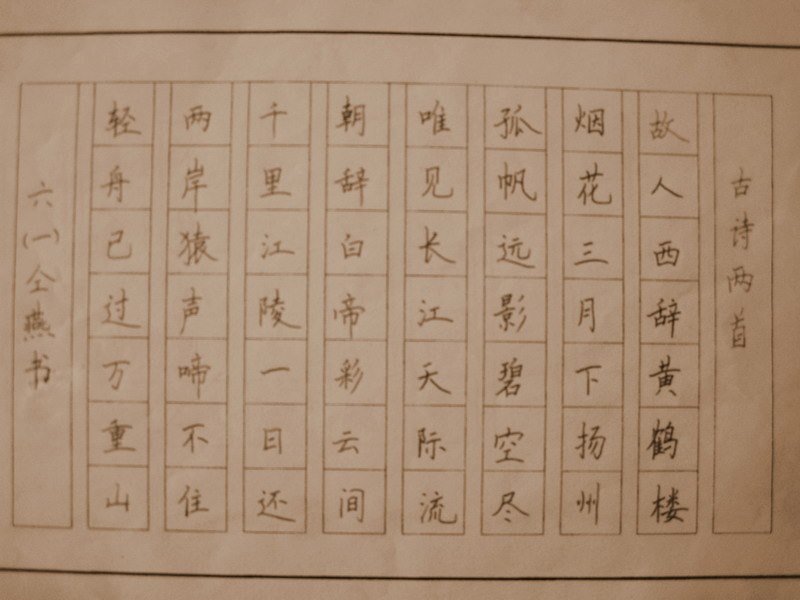 古诗两首
故人西辞黄鹤楼
烟花三月下扬州
孤帆远影碧空尽
唯见长江天际流
朝辞白帝彩云间
千里江陵一日还
两岸猿声啼不住
轻舟已过万重山
六(一)仝燕书